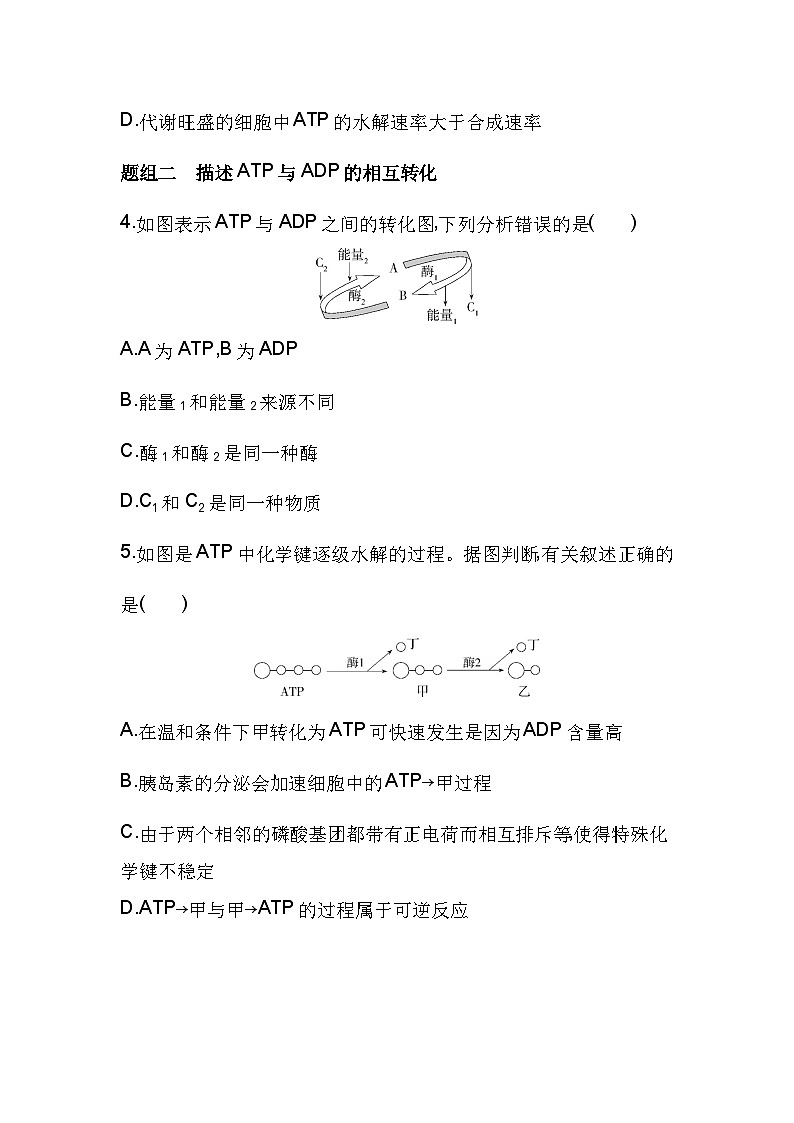 D.代谢旺盛的细胞中ATP的水解速率大于合成速率
题组二 描述ATP与ADP的相互转化
4.如图表示ATP与ADP之间的转化图,下列分析错误的是( )
C₂ 能量₂ A 酶₁
酶₂ B 能量₁ C₁
A.A为ATP,B为ADP
B.能量₁和能量₂来源不同
C.酶₁和酶₂是同一种酶
D.C₁和C₂是同一种物质
5.如图是ATP中化学键逐级水解的过程。据图判断,有关叙述正确的
是( )
丁 丁
酶1 酶2
ATP 甲 乙
A.在温和条件下甲转化为ATP可快速发生是因为ADP含量高
B.胰岛素的分泌会加速细胞中的ATP→甲过程
C.由于两个相邻的磷酸基团都带有正电荷而相互排斥等,使得特殊化
学键不稳定
D.ATP→甲与甲→ATP的过程属于可逆反应